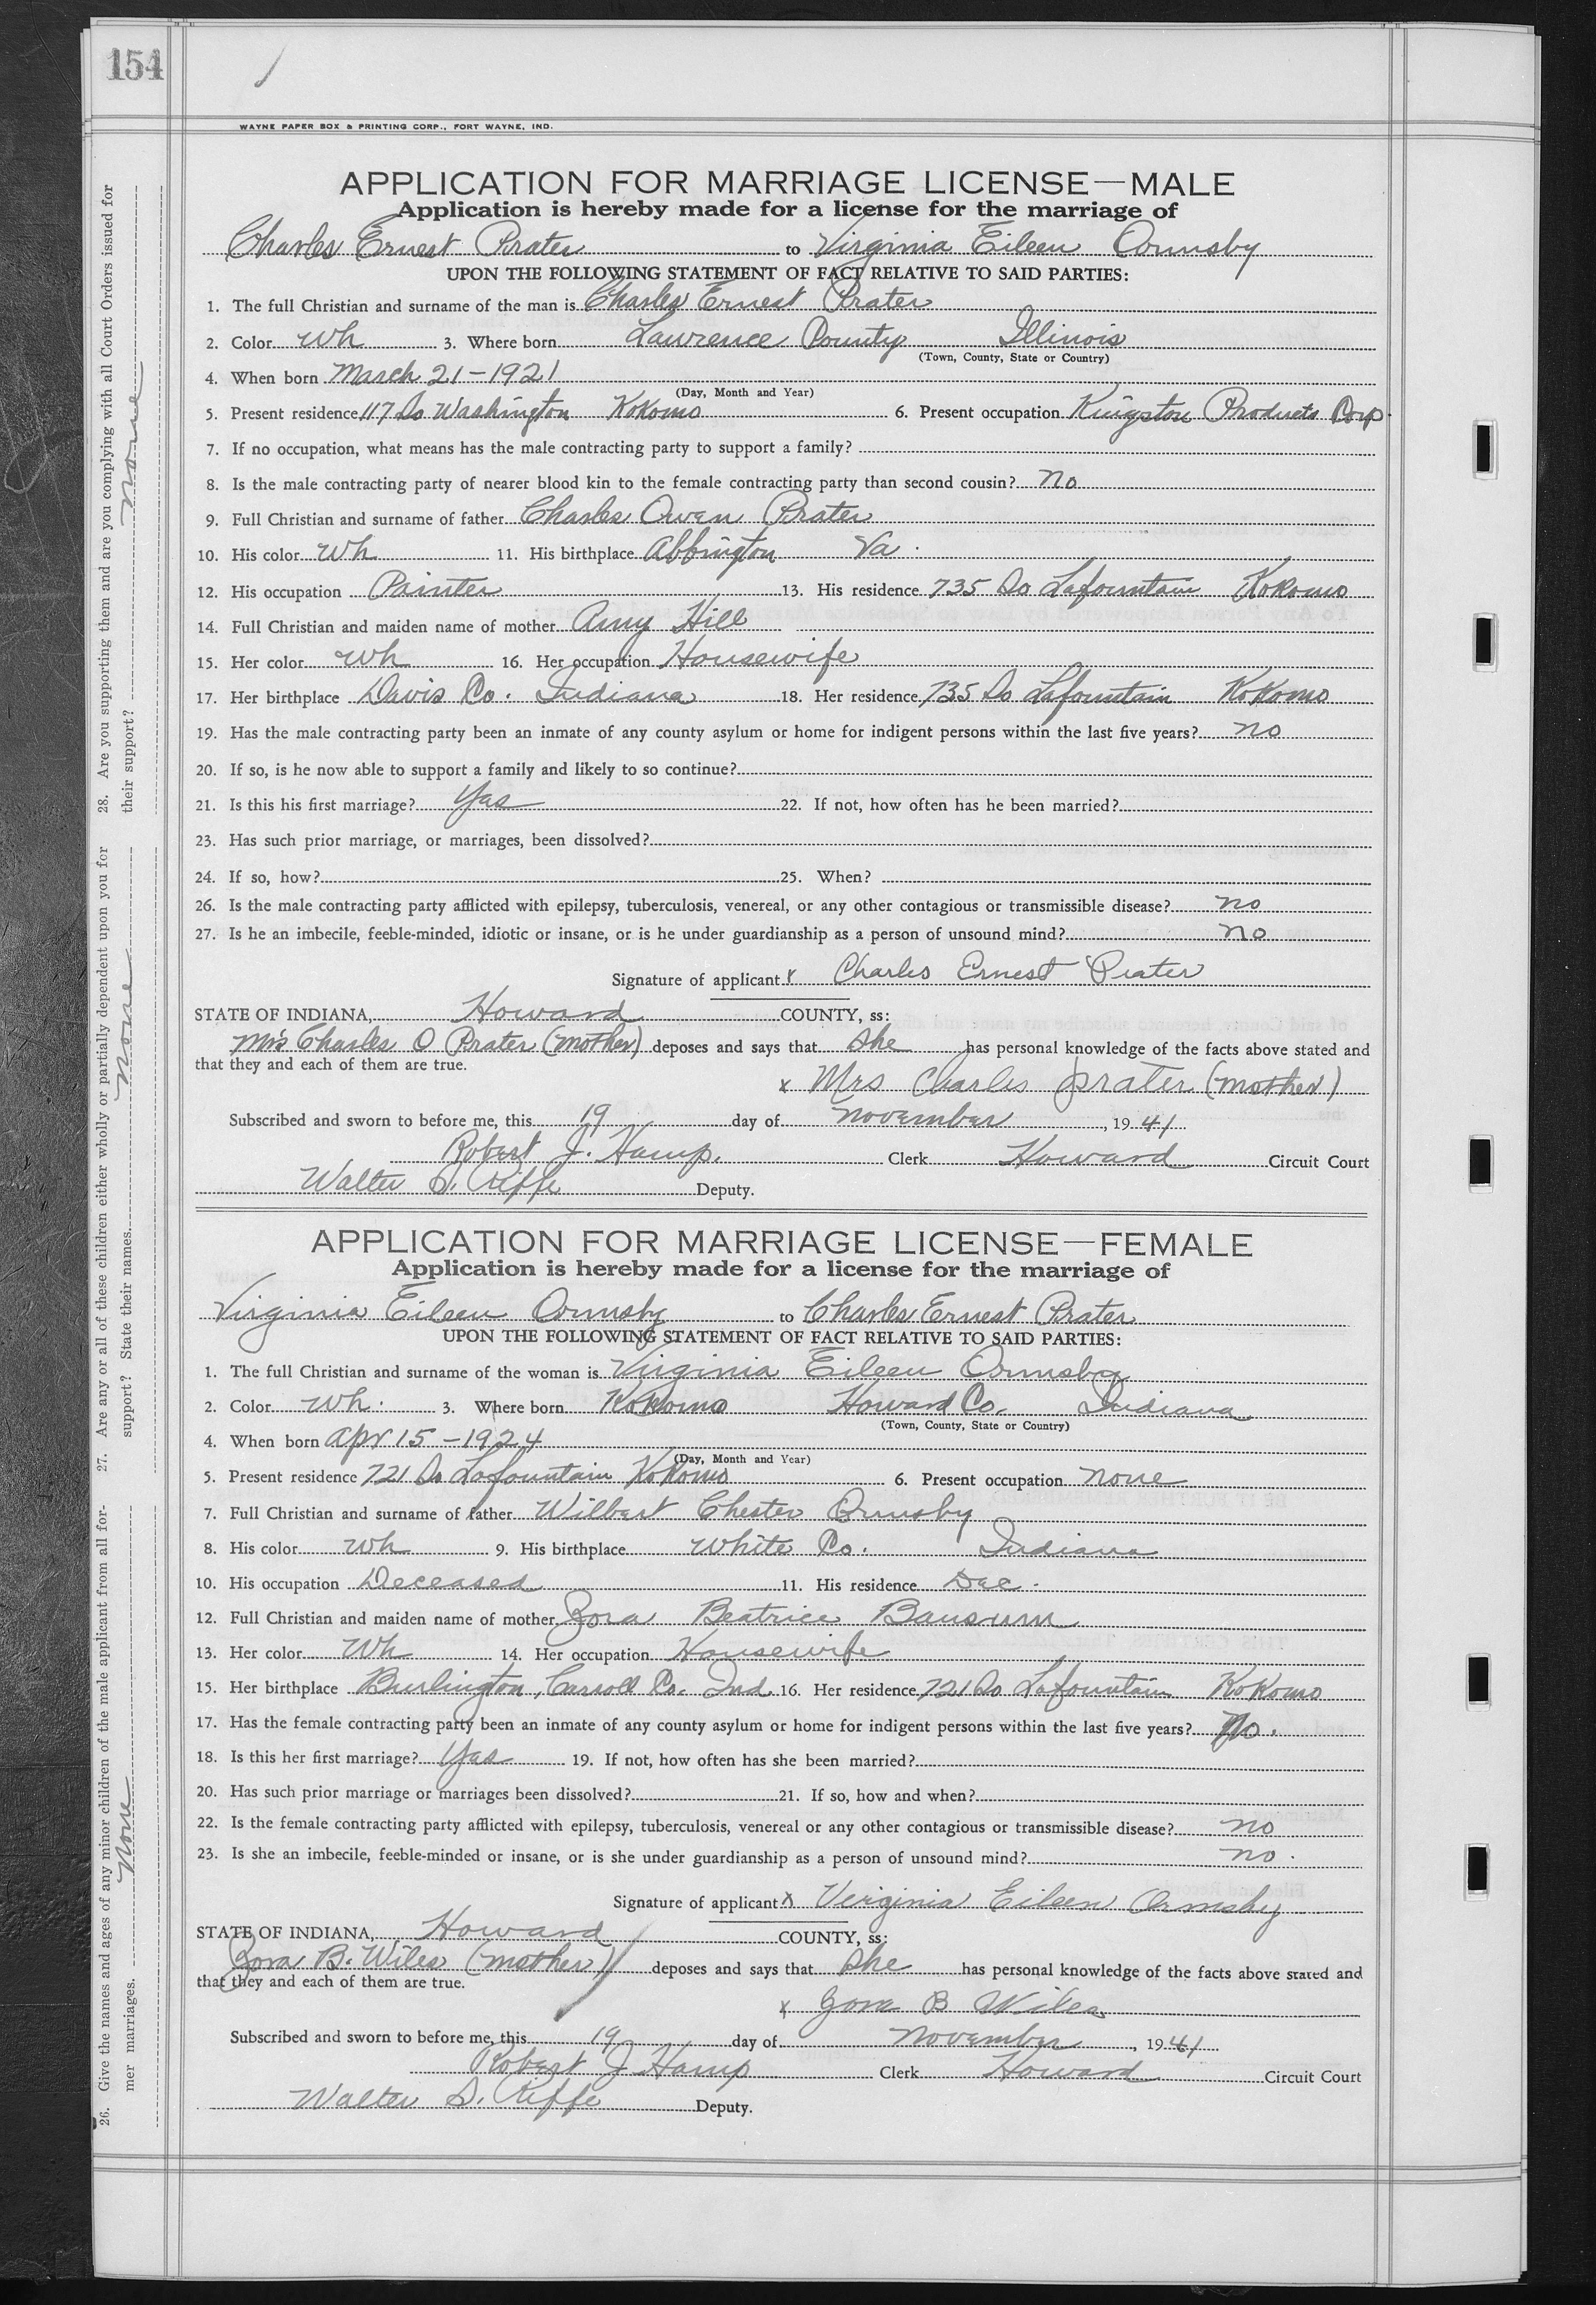 154
WAYNE PAPER BOX & PRINTING CORP., FORT WAYNE, IND.
APPLICATION FOR MARRIAGE LICENSE—MALE
Application is hereby made for a license for the marriage of
Charles Ernest Prater to Virginia Eileen Ormsby
UPON THE FOLLOWING STATEMENT OF FACT RELATIVE TO SAID PARTIES:
1. The full Christian and surname of the man is Charles Ernest Prater
2. Color Wh 3. Where born Lawrence County Illinois
(Town, County, State or Country)
4. When born March 21-1921
(Day, Month and Year)
5. Present residence 117 So Washington Kokomo 6. Present occupation Kingston Products Corp.
7. If no occupation, what means has the male contracting party to support a family?
8. Is the male contracting party of nearer blood kin to the female contracting party than second cousin? No
9. Full Christian and surname of father Charles Owen Prater
10. His color Wh 11. His birthplace Abbington Va.
12. His occupation Painter 13. His residence 735 So Lafountain Kokomo
14. Full Christian and maiden name of mother Amy Hill
15. Her color Wh 16. Her occupation Housewife
17. Her birthplace Davis Co. Indiana 18. Her residence 735 So Lafountain Kokomo
19. Has the male contracting party been an inmate of any county asylum or home for indigent persons within the last five years? no
20. If so, is he now able to support a family and likely to so continue?
21. Is this his first marriage? Yes 22. If not, how often has he been married?
23. Has such prior marriage, or marriages, been dissolved?
24. If so, how? 25. When?
26. Is the male contracting party afflicted with epilepsy, tuberculosis, venereal, or any other contagious or transmissible disease? no
27. Is he an imbecile, feeble-minded, idiotic or insane, or is he under guardianship as a person of unsound mind? no
Signature of applicant x Charles Ernest Prater
STATE OF INDIANA, Howard COUNTY, ss:
Mrs Charles O Prater (mother) deposes and says that She has personal knowledge of the facts above stated and
that they and each of them are true.
x Mrs Charles Prater (mother)
Subscribed and sworn to before me, this 19 day of November, 1941
Robert J. Hamp. Clerk Howard Circuit Court
Walter S. Riffe Deputy.
APPLICATION FOR MARRIAGE LICENSE—FEMALE
Application is hereby made for a license for the marriage of
Virginia Eileen Ormsby to Charles Ernest Prater
UPON THE FOLLOWING STATEMENT OF FACT RELATIVE TO SAID PARTIES:
1. The full Christian and surname of the woman is Virginia Eileen Ormsby
2. Color Wh. 3. Where born Kokomo Howard Co. Indiana
(Town, County, State or Country)
4. When born Apr 15-1924
(Day, Month and Year)
5. Present residence 721 So Lafountain Kokomo 6. Present occupation none
7. Full Christian and surname of father Wilbert Chester Ormsby
8. His color Wh 9. His birthplace White Co. Indiana
10. His occupation Deceased 11. His residence Dec.
12. Full Christian and maiden name of mother Zora Beatrice Bausum
13. Her color Wh 14. Her occupation Housewife
15. Her birthplace Burlington, Carroll Co. Ind. 16. Her residence 721 So Lafountain Kokomo
17. Has the female contracting party been an inmate of any county asylum or home for indigent persons within the last five years? No.
18. Is this her first marriage? Yes 19. If not, how often has she been married?
20. Has such prior marriage or marriages been dissolved? 21. If so, how and when?
22. Is the female contracting party afflicted with epilepsy, tuberculosis, venereal or any other contagious or transmissible disease? no
23. Is she an imbecile, feeble-minded or insane, or is she under guardianship as a person of unsound mind? no.
Signature of applicant x Virginia Eileen Ormsby
STATE OF INDIANA, Howard COUNTY, ss:
Zora B. Wiles (mother) deposes and says that She has personal knowledge of the facts above stated and
that they and each of them are true.
x Zora B Wiles
Subscribed and sworn to before me, this 19 day of November, 1941
Robert J Hamp Clerk Howard Circuit Court
Walter S. Riffe Deputy.
26. Give the names and ages of any minor children of the male applicant from all for-
mer marriages. None
27. Are any or all of these children either wholly or partially dependent upon you for
support? State their names. None
28. Are you supporting them and are you complying with all Court Orders issued for
their support? None